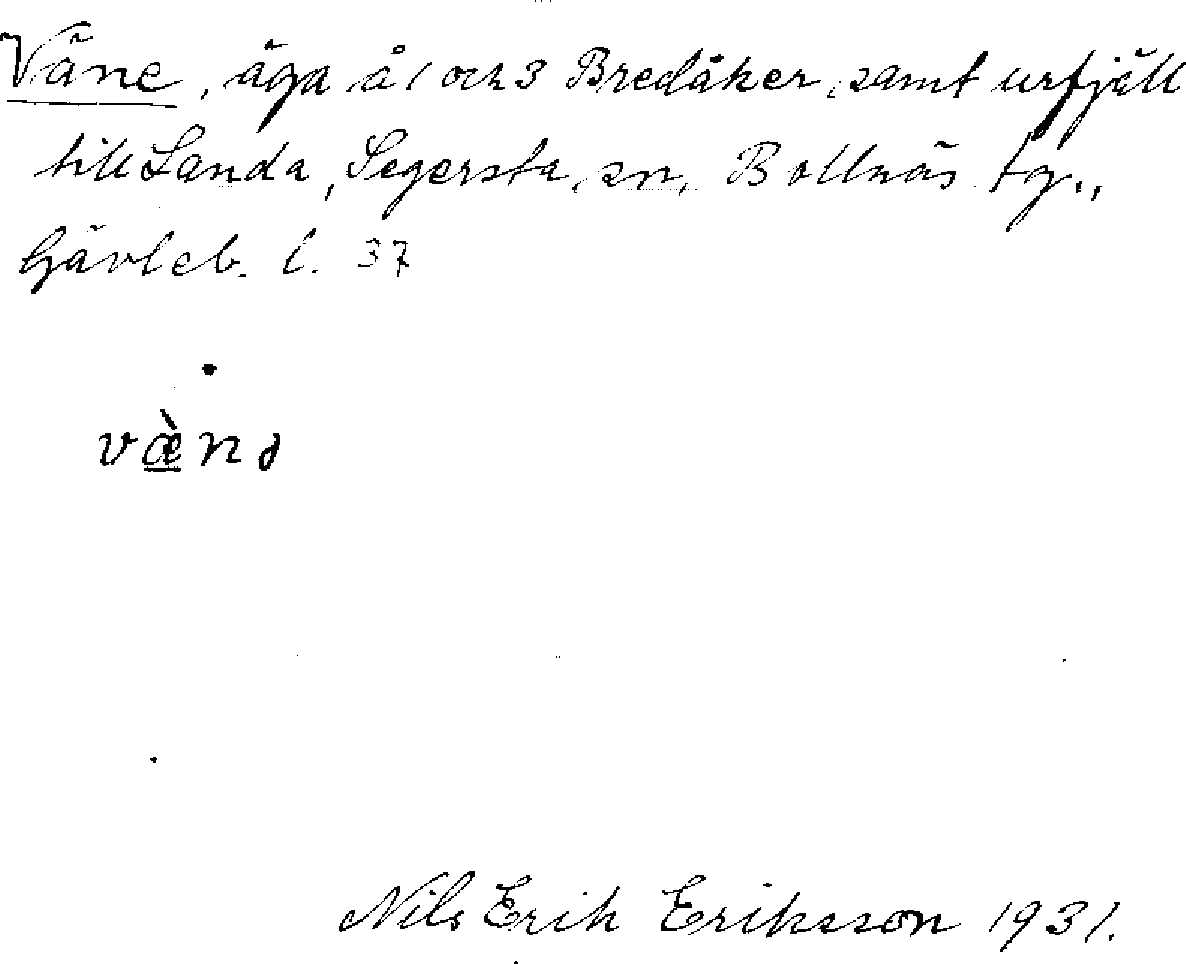 Väne, äga å 1 och 3 Bredåker, samt urfjäll
till Landa, Segersta, sn, Bollnäs tg.,
Gävleb. l. 37
væ̀nə
Nils Erik Eriksson 1931.